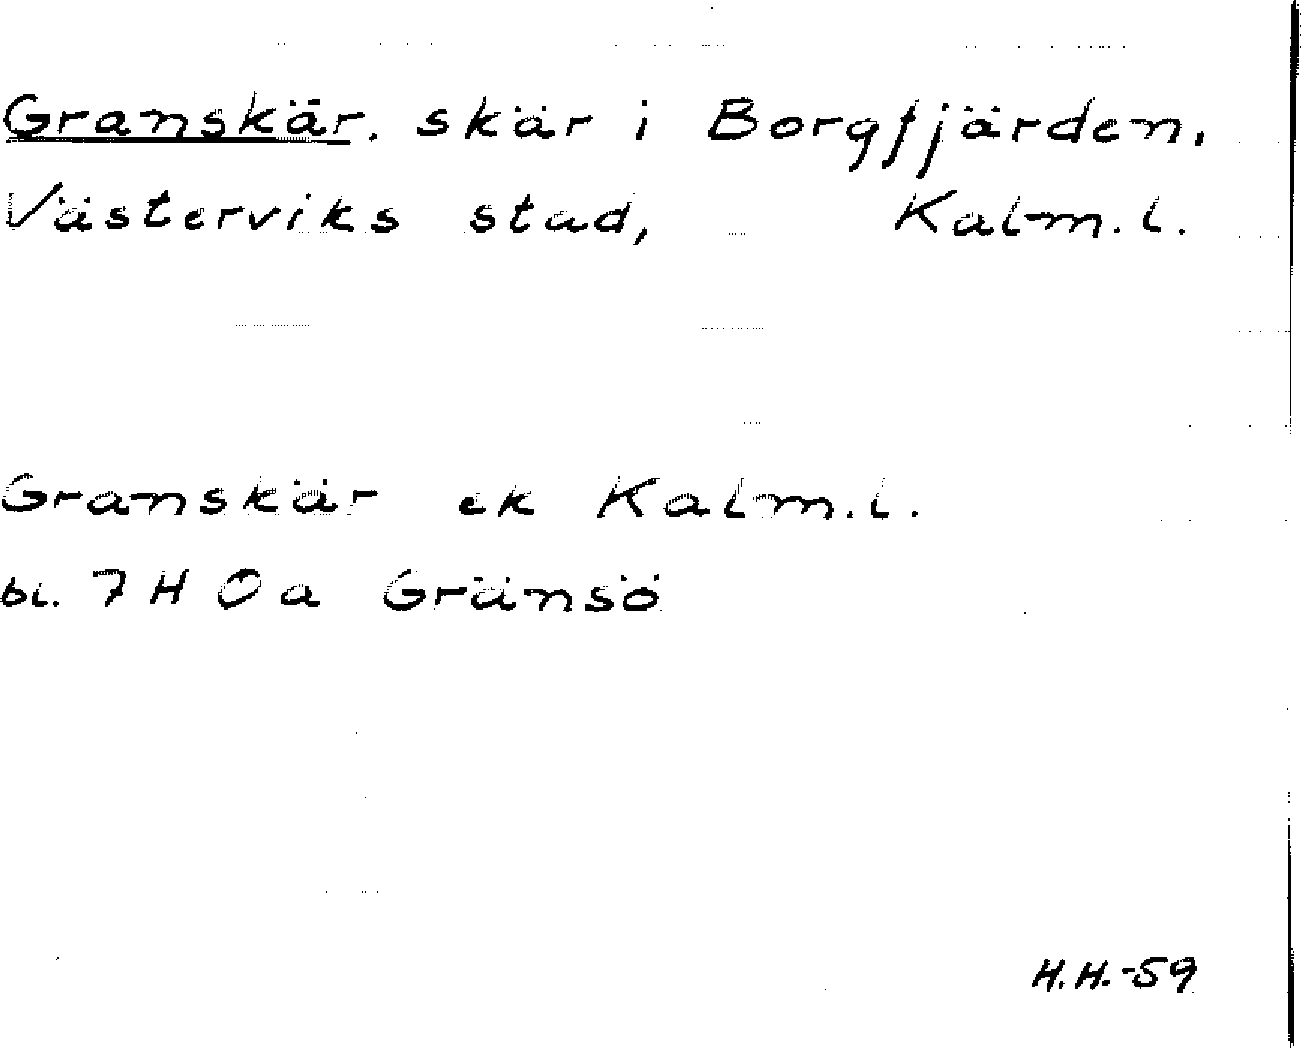 Granskär, skär i Borgfjärden,
Västerviks stad, Kalm.l.
Granskär ek Kalm.l.
bl. 7 H 0 a Gränsö
H.H.-59